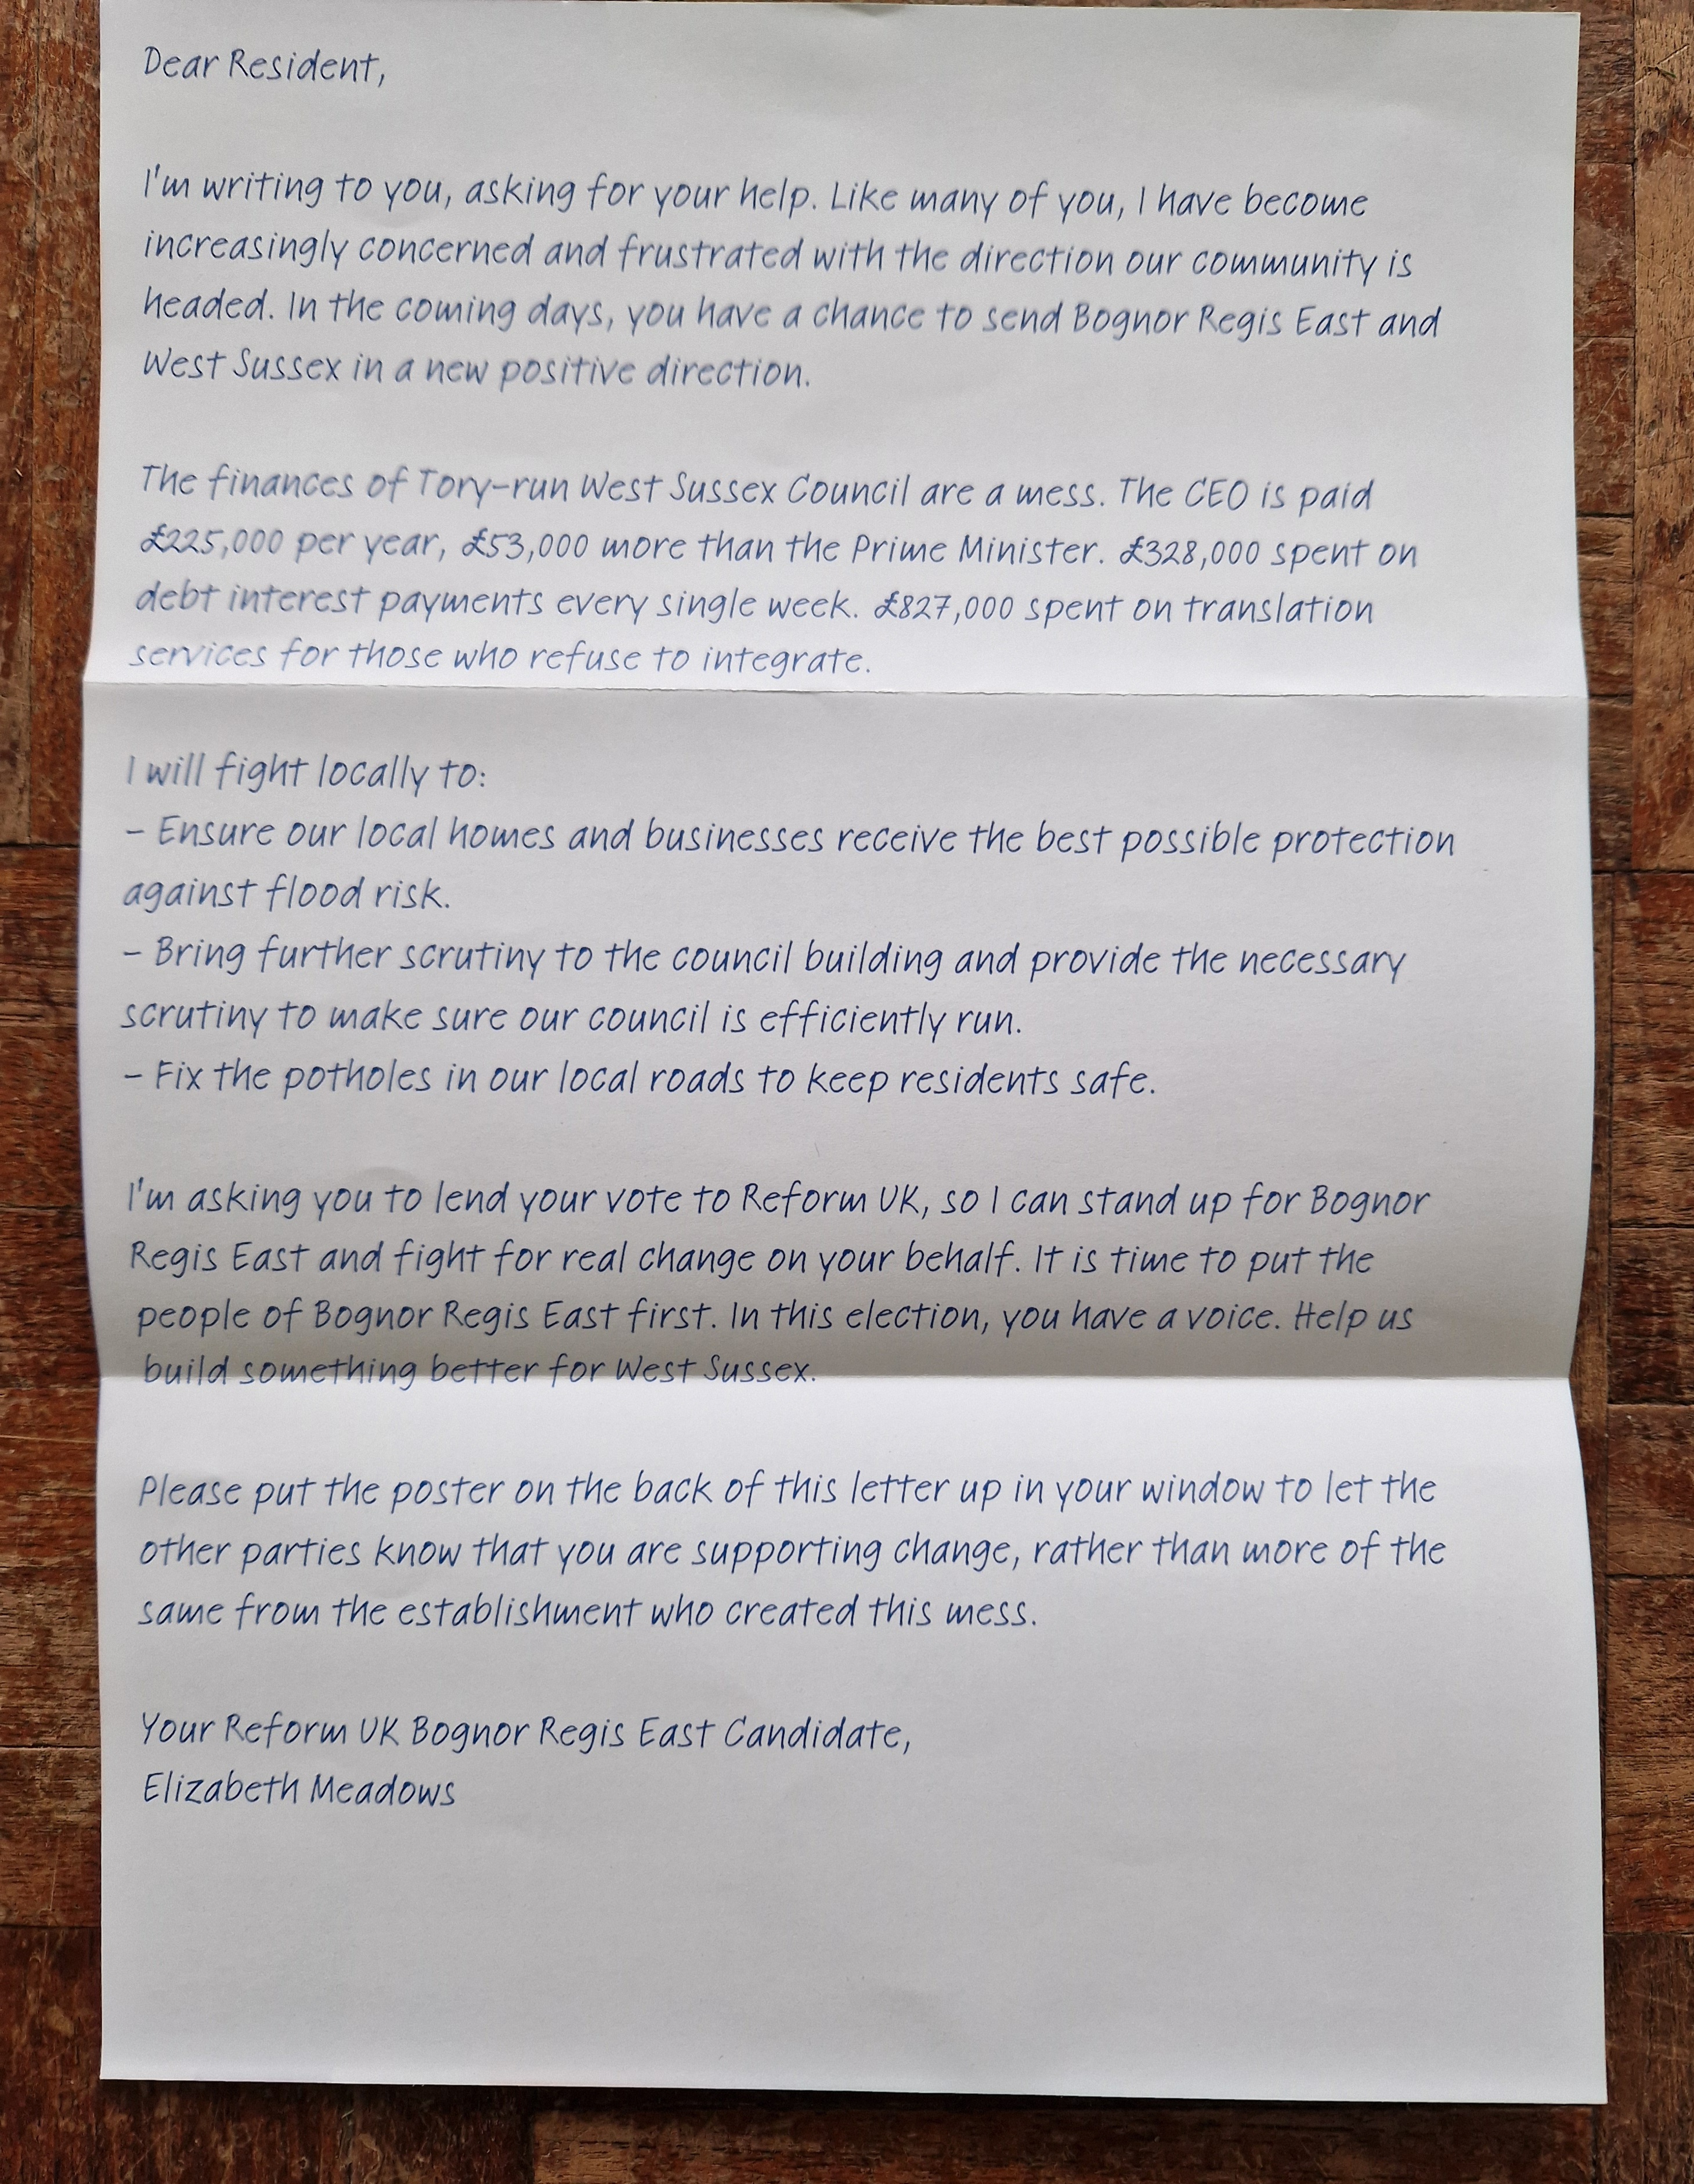 Dear Resident,
I'm writing to you, asking for your help. Like many of you, I have become
increasingly concerned and frustrated with the direction our community is
headed. In the coming days, you have a chance to send Bognor Regis East and
West Sussex in a new positive direction.
The finances of Tory-run West Sussex Council are a mess. The CEO is paid
£225,000 per year, £53,000 more than the Prime Minister. £328,000 spent on
debt interest payments every single week. £827,000 spent on translation
services for those who refuse to integrate.
I will fight locally to:
- Ensure our local homes and businesses receive the best possible protection
against flood risk.
- Bring further scrutiny to the council building and provide the necessary
scrutiny to make sure our council is efficiently run.
- Fix the potholes in our local roads to keep residents safe.
I'm asking you to lend your vote to Reform UK, so I can stand up for Bognor
Regis East and fight for real change on your behalf. It is time to put the
people of Bognor Regis East first. In this election, you have a voice. Help us
build something better for West Sussex.
Please put the poster on the back of this letter up in your window to let the
other parties know that you are supporting change, rather than more of the
same from the establishment who created this mess.
Your Reform UK Bognor Regis East Candidate,
Elizabeth Meadows